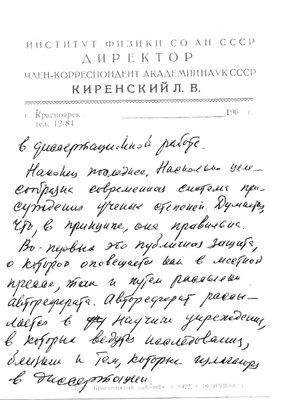 ИНСТИТУТ ФИЗИКИ СО АН СССР
ДИРЕКТОР
ЧЛЕН-КОРРЕСПОНДЕНТ АКАДЕМИИ НАУК СССР
КИРЕНСКИЙ Л. В.
г. Красноярск
196 г.
тел. 12-84
в диссертационной работе.
Наконец последнее. Насколько целе-
сообразна современная система при-
суждения ученых степеней. Думается,
что, в принципе, она правильна.
Во-первых это публичная защита,
о которой оповещается как в местной
прессе, так и путем рассылки
автореферата. Автореферат рассы-
лается в научные учреждения,
в которых ведутся исследования,
близкие к тем, которые излагаются
в диссертации.